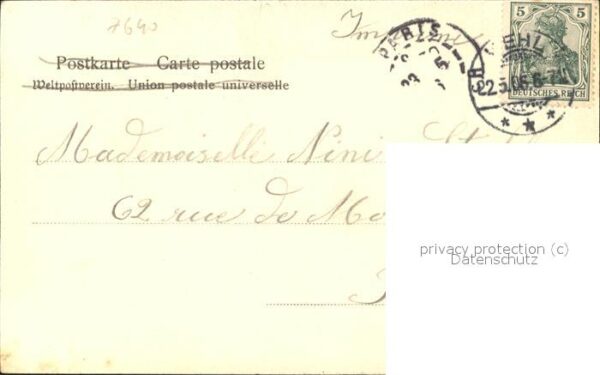 7640
PARIS
KEHL
22.5.05.6-7N
5 5
DEUTSCHES REICH
Postkarte — Carte postale
Weltpostverein. — Union postale universelle
Mademoiselle Nini
62 rue de Mo
privacy protection (c)
Datenschutz